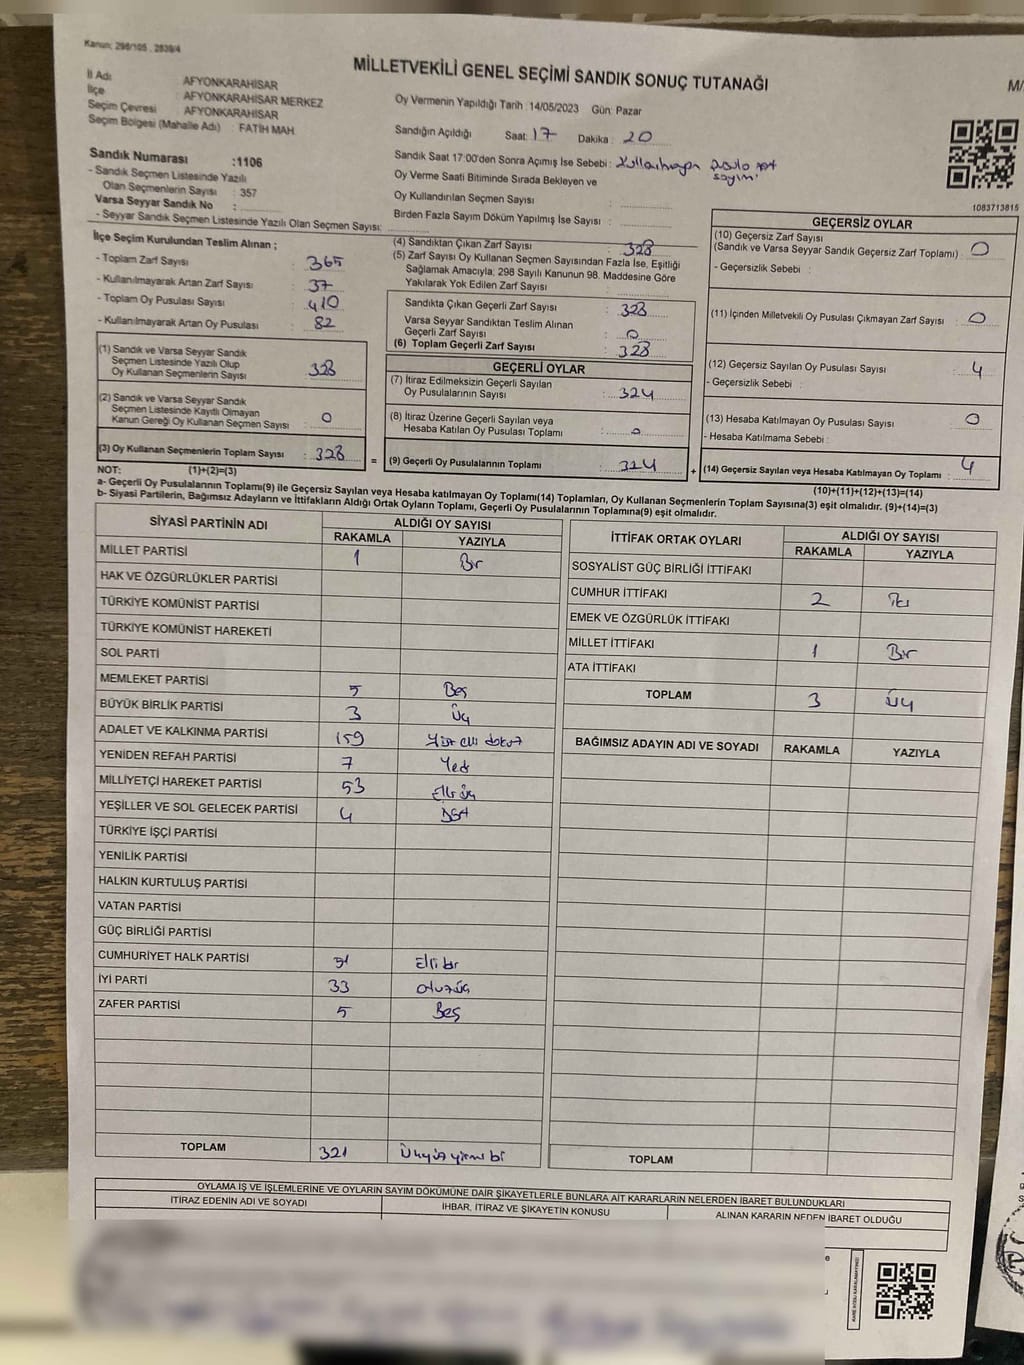 Kanun; 298/105 , 2839/4
MİLLETVEKİLİ GENEL SEÇİMİ SANDIK SONUÇ TUTANAĞI
İl Adı AFYONKARAHİSAR
İlçe : AFYONKARAHİSAR MERKEZ
Seçim Çevresi : AFYONKARAHİSAR
Seçim Bölgesi (Mahalle Adı) : FATİH MAH.
Sandık Numarası :1106
- Sandık Seçmen Listesinde Yazılı
Olan Seçmenlerin Sayısı : 357
Varsa Seyyar Sandık No :
- Seyyar Sandık Seçmen Listesinde Yazılı Olan Seçmen Sayısı:
Oy Vermenin Yapıldığı Tarih :14/05/2023 Gün: Pazar
Sandığın Açıldığı Saat: 17 Dakika : 20
Sandık Saat 17:00'den Sonra Açımış İse Sebebi :
Oy Verme Saati Bitiminde Sırada Bekleyen ve
Oy Kullandırılan Seçmen Sayısı :
Birden Fazla Sayım Döküm Yapılmış İse Sayısı :
1083713815
İlçe Seçim Kurulundan Teslim Alınan ;
- Toplam Zarf Sayısı : 365
- Kullanılmayarak Artan Zarf Sayısı : 37
- Toplam Oy Pusulası Sayısı : 410
- Kullanılmayarak Artan Oy Pusulası : 82
(1) Sandık ve Varsa Seyyar Sandık
Seçmen Listesinde Yazılı Olup
Oy Kullanan Seçmenlerin Sayısı : 328
(2) Sandık ve Varsa Seyyar Sandık
Seçmen Listesinde Kayıtlı Olmayan
Kanun Gereği Oy Kullanan Seçmen Sayısı : 0
(3) Oy Kullanan Seçmenlerin Toplam Sayısı : 328
(4) Sandıktan Çıkan Zarf Sayısı : 328
(5) Zarf Sayısı Oy Kullanan Seçmen Sayısından Fazla İse, Eşitliği
Sağlamak Amacıyla; 298 Sayılı Kanunun 98. Maddesine Göre
Yakılarak Yok Edilen Zarf Sayısı :
Sandıkta Çıkan Geçerli Zarf Sayısı : 328
Varsa Seyyar Sandıktan Teslim Alınan
Geçerli Zarf Sayısı : 0
(6) Toplam Geçerli Zarf Sayısı : 328
GEÇERLİ OYLAR
(7) İtiraz Edilmeksizin Geçerli Sayılan
Oy Pusulalarının Sayısı : 324
(8) İtiraz Üzerine Geçerli Sayılan veya
Hesaba Katılan Oy Pusulası Toplamı : 0
= (9) Geçerli Oy Pusulalarının Toplamı : 324
GEÇERSİZ OYLAR
(10) Geçersiz Zarf Sayısı
(Sandık ve Varsa Seyyar Sandık Geçersiz Zarf Toplamı) : 0
- Geçersizlik Sebebi :
(11) İçinden Milletvekili Oy Pusulası Çıkmayan Zarf Sayısı : 0
(12) Geçersiz Sayılan Oy Pusulası Sayısı : 4
- Geçersizlik Sebebi :
(13) Hesaba Katılmayan Oy Pusulası Sayısı : 0
- Hesaba Katılmama Sebebi :
+ (14) Geçersiz Sayılan veya Hesaba Katılmayan Oy Toplamı : 4
NOT: (1)+(2)=(3)
(10)+(11)+(12)+(13)=(14)
a- Geçerli Oy Pusulalarının Toplamı(9) ile Geçersiz Sayılan veya Hesaba katılmayan Oy Toplamı(14) Toplamları, Oy Kullanan Seçmenlerin Toplam Sayısına(3) eşit olmalıdır. (9)+(14)=(3)
b- Siyasi Partilerin, Bağımsız Adayların ve İttifakların Aldığı Ortak Oyların Toplamı, Geçerli Oy Pusulalarının Toplamına(9) eşit olmalıdır.
SİYASİ PARTİNİN ADI ALDIĞI OY SAYISI
RAKAMLA YAZIYLA
MİLLET PARTİSİ 1 Bir
HAK VE ÖZGÜRLÜKLER PARTİSİ
TÜRKİYE KOMÜNİST PARTİSİ
TÜRKİYE KOMÜNİST HAREKETİ
SOL PARTİ
MEMLEKET PARTİSİ 5 Beş
BÜYÜK BİRLİK PARTİSİ 3 Üç
ADALET VE KALKINMA PARTİSİ 159 Yüz elli dokuz
YENİDEN REFAH PARTİSİ 7 Yedi
MİLLİYETÇİ HAREKET PARTİSİ 53 Elli üç
YEŞİLLER VE SOL GELECEK PARTİSİ 4 Dört
TÜRKİYE İŞÇİ PARTİSİ
YENİLİK PARTİSİ
HALKIN KURTULUŞ PARTİSİ
VATAN PARTİSİ
GÜÇ BİRLİĞİ PARTİSİ
CUMHURİYET HALK PARTİSİ 51 Elli bir
İYİ PARTİ 33 otuz üç
ZAFER PARTİSİ 5 Beş
TOPLAM 321 Üçyüz yirmi bir
İTTİFAK ORTAK OYLARI ALDIĞI OY SAYISI
RAKAMLA YAZIYLA
SOSYALİST GÜÇ BİRLİĞİ İTTİFAKI
CUMHUR İTTİFAKI 2 İki
EMEK VE ÖZGÜRLÜK İTTİFAKI
MİLLET İTTİFAKI 1 Bir
ATA İTTİFAKI
TOPLAM 3 Üç
BAĞIMSIZ ADAYIN ADI VE SOYADI RAKAMLA YAZIYLA
TOPLAM
OYLAMA İŞ VE İŞLEMLERİNE VE OYLARIN SAYIM DÖKÜMÜNE DAİR ŞİKAYETLERLE BUNLARA AİT KARARLARIN NELERDEN İBARET BULUNDUKLARI
İTİRAZ EDENİN ADI VE SOYADI İHBAR, İTİRAZ VE ŞİKAYETİN KONUSU ALINAN KARARIN NEDEN İBARET OLDUĞU